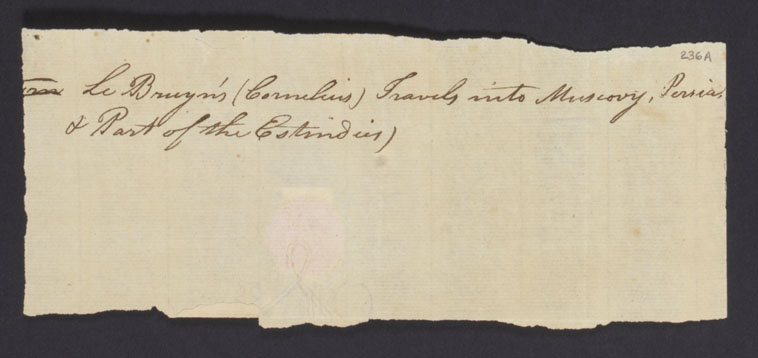 236A
Le Bruyn's (Cornelius) Travels into Muscovy, Persia,
& Part of the Estindies)